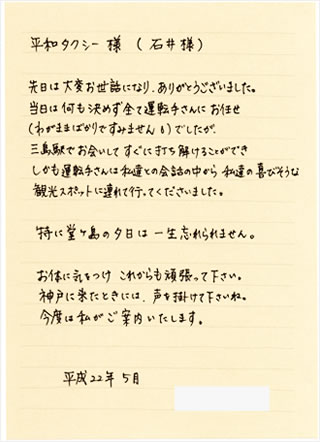 平和タクシー様 (石井様)
先日は大変お世話になり、ありがとうございました。
当日は何も決めず全て運転手さんにお任せ
(わがままばかりですみません💧)でしたが、
三島駅でお会いしてすぐに打ち解けることができ
しかも運転手さんは私達との会話の中から 私達の喜びそうな
観光スポットに連れて行ってくださいました。
特に堂ヶ島の夕日は一生忘れられません。
お体に気をつけ これからも頑張って下さい。
神戸に来たときには、声を掛けて下さいね。
今度は私がご案内いたします。
平成22年 5月